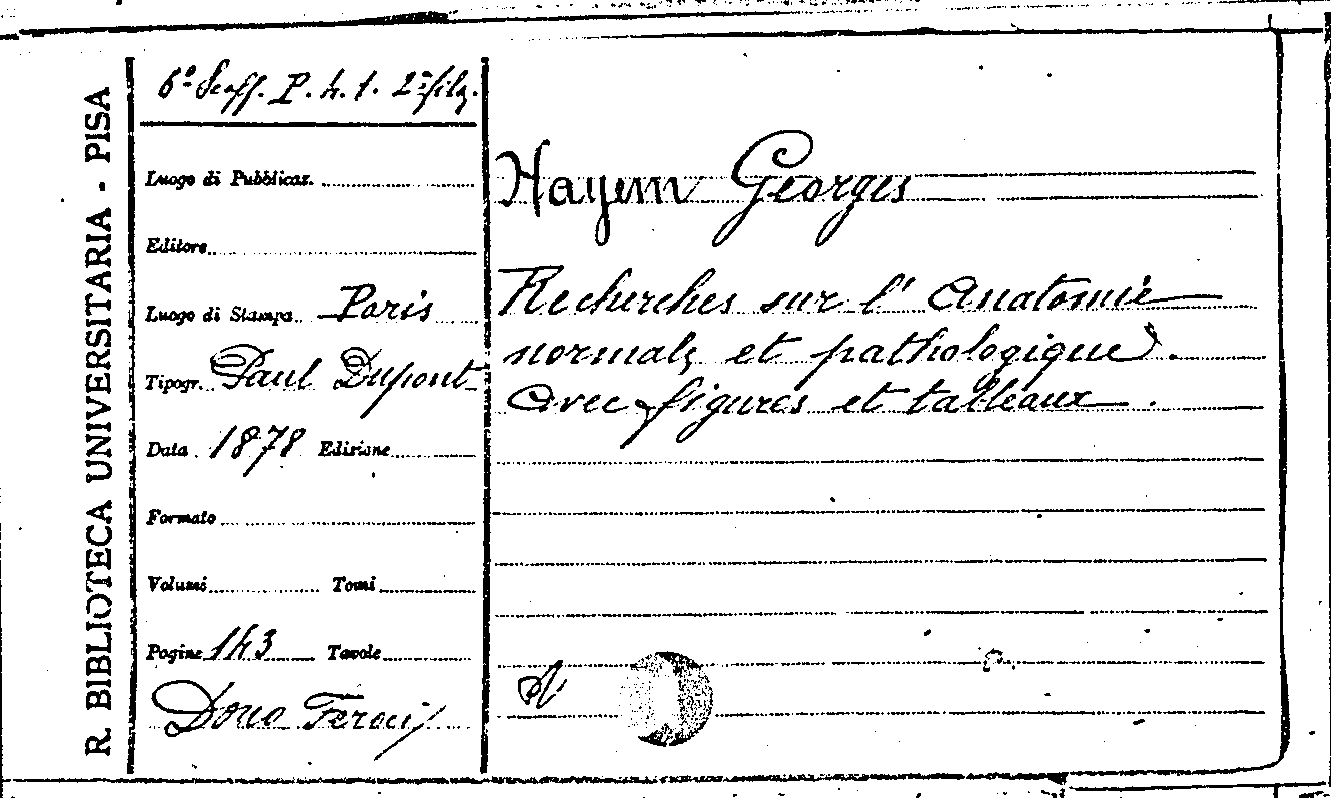 R. BIBLIOTECA UNIVERSITARIA - PISA
6° Scaff. P. 4. 1. 2ª fila.
Luogo di Pubblicaz.
Editore
Luogo di Stampa Paris
Tipogr. Paul Dupont
Data 1878 Edizione
Formato
Volumi Tomi
Pagine 143 Tavole
Dono Feroci
Hayem Georges
Recherches sur l' Anatomie
normale et pathologique.
Avec figures et tableaux.